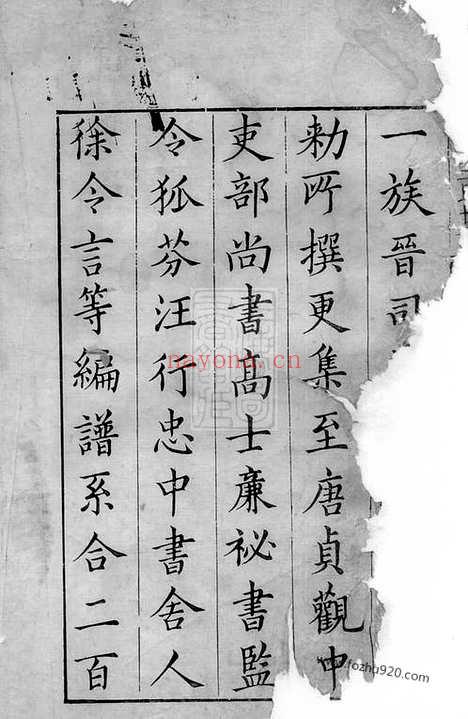 一族晉司
勑所撰更集至唐貞觀中
吏部尚書高士廉祕書監
令狐芬汪行忠中書舍人
徐令言等編譜系合二百
nayona.cn
fozhu920.com